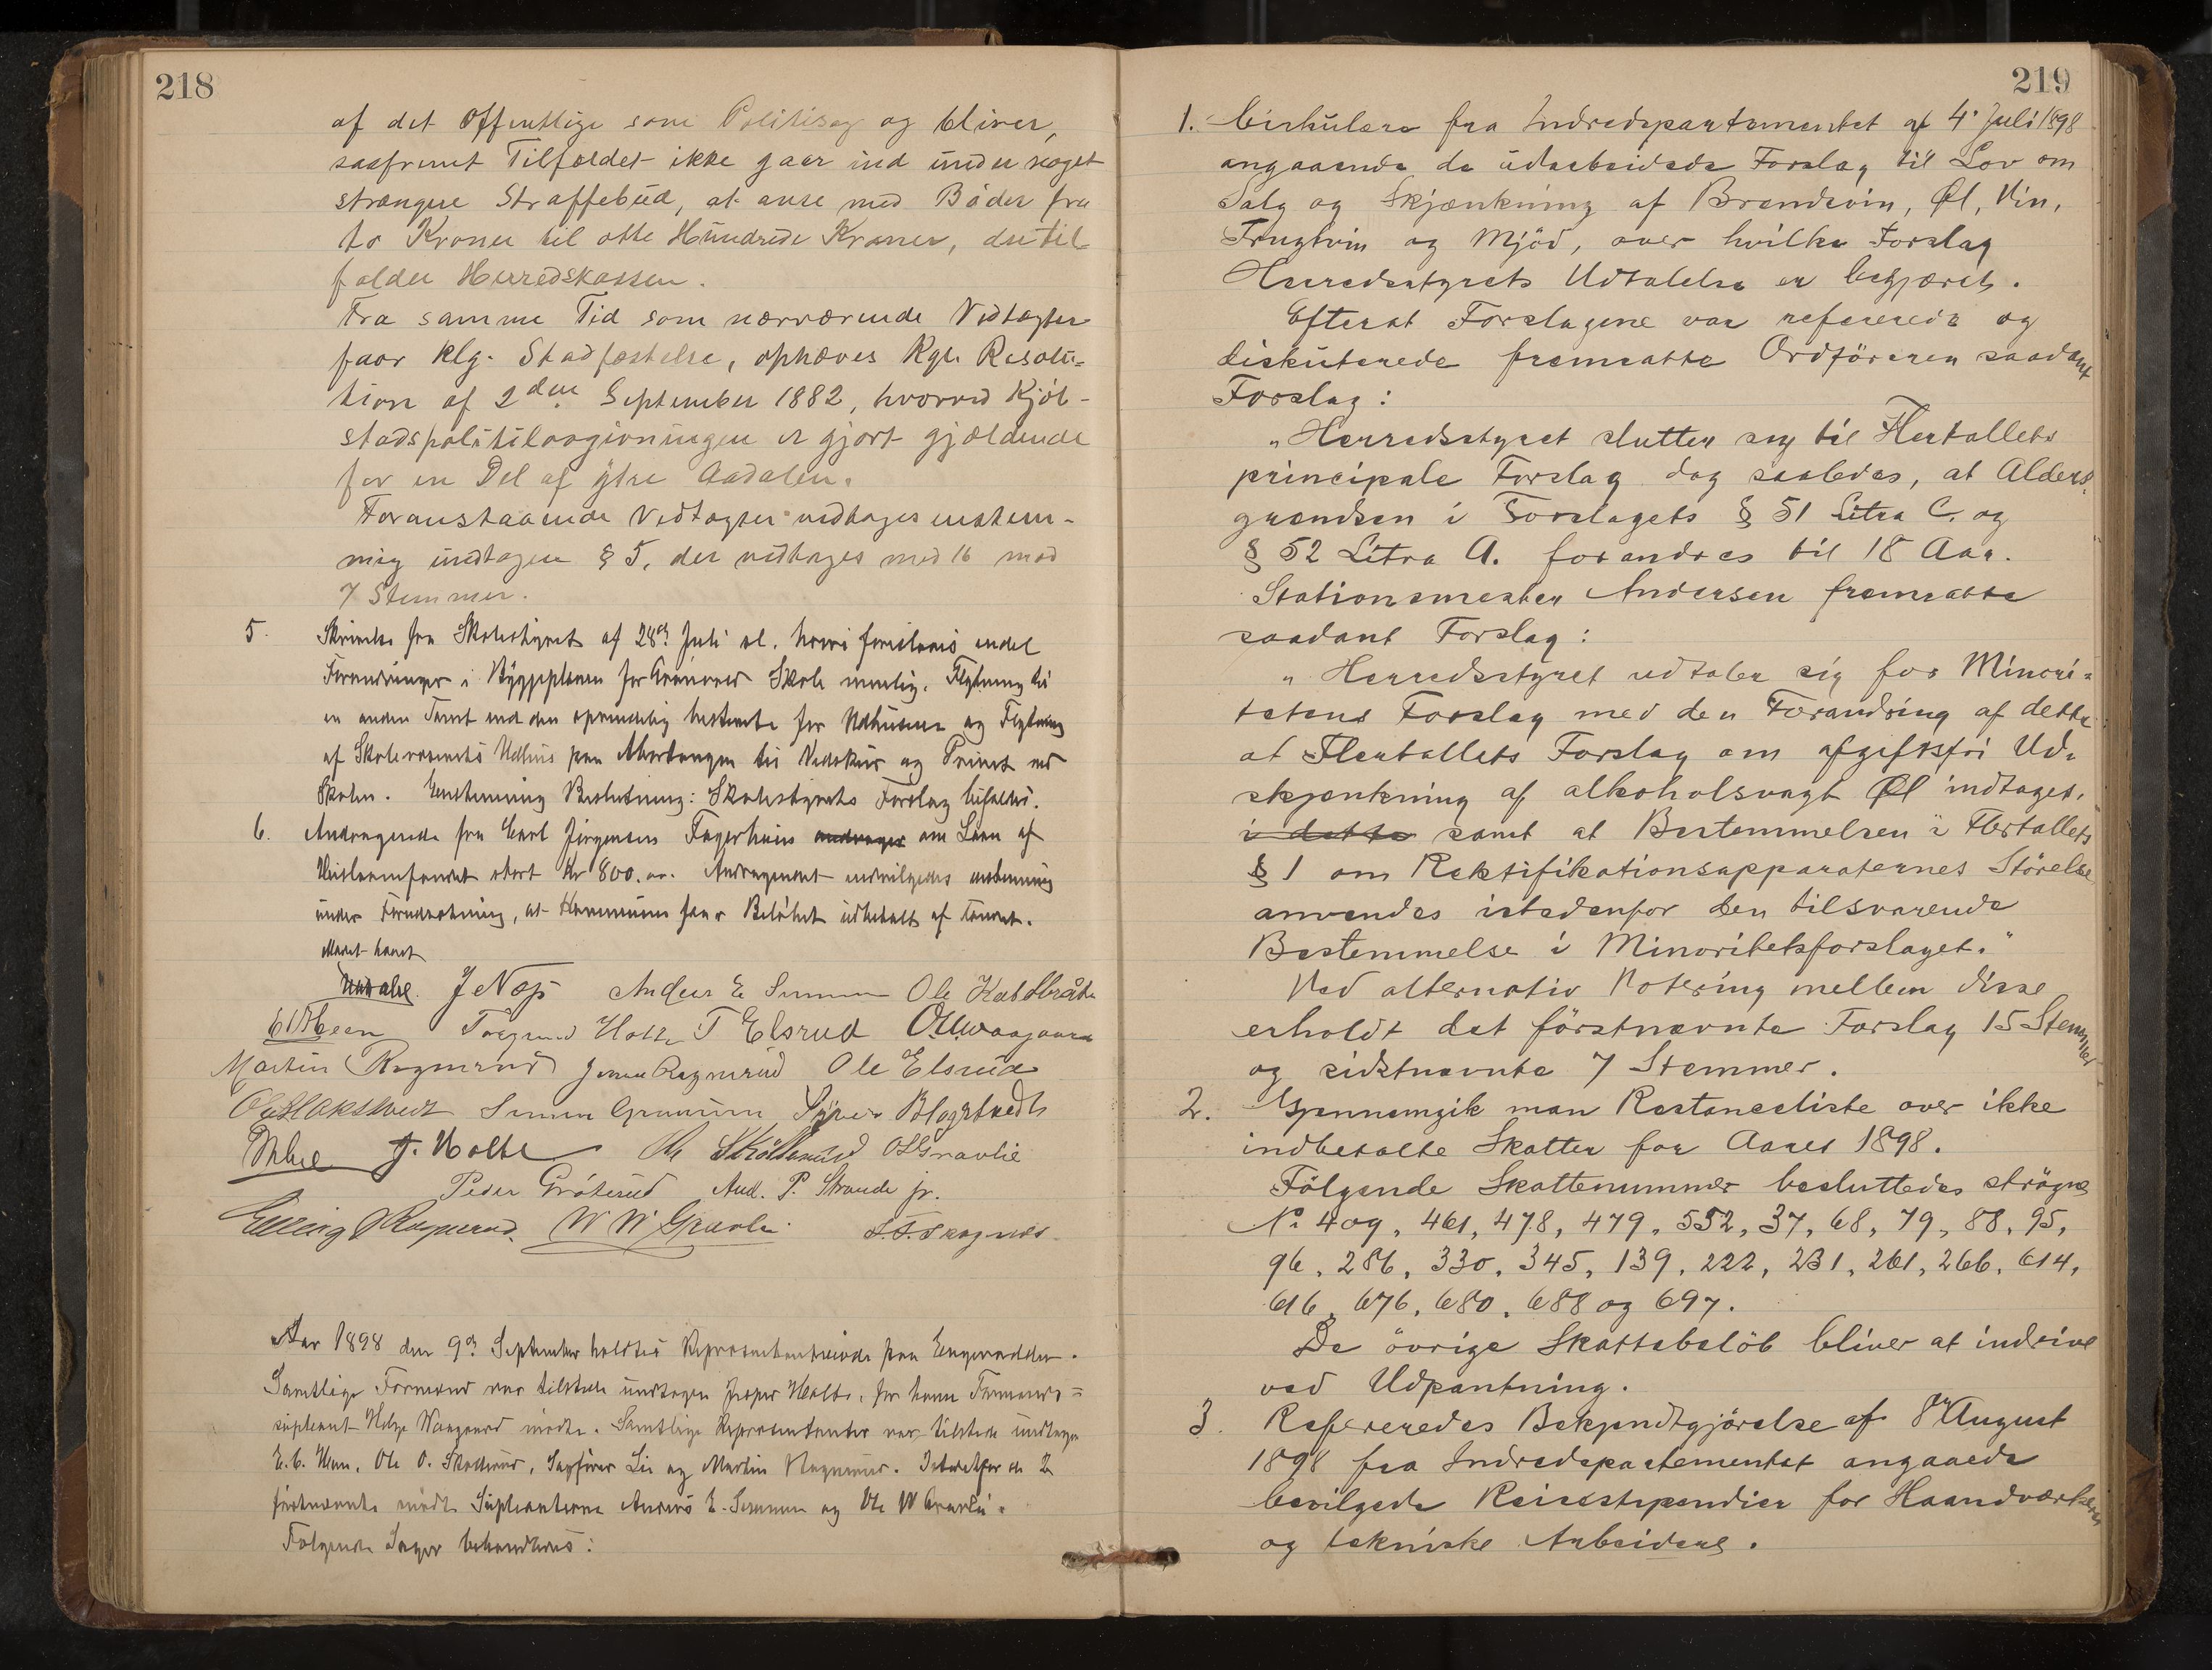 218
af det Offentlige som Politisag og bliver,
saafremt Tilfældet ikke gaar ind under noget
strængere Straffebud, at anse med Böder fra
to Kroner til otte Hundrede Kroner, der til
falder Herredskassen.
Fra samme Tid som nærværende Vedtægter
faar Klg. Stadfæstelse, ophæves Kgl. Resolu=
tion af 2den September 1882, hvorved Kjöb-
stadspolitilovgivningen er gjort gjældende
for en Del af ytre Aadalen.
Foranstaaende Vedtægter vedtages enstem-
mig undtagen § 5, der vedtages med 16 mod
7 Stemmer.
5. Skrivelse fra Skolestyret af 28de Juli sl. hvori foreslaaes endel
Forandringer i Byggeplanen for Skole nemlig. Flytning til
en anden Tomt end den oprindelig bestemte for Udhusene og Flytning
af Skolevæsenets Udhus paa til Vedskur og Privet ved
Skolen. Enstemmig Beslutning: Skolestyrets Forslag bifaldes.
6. Andragende fra Carl Jörgensen Fagerhaus andrager om Laan af
stort Kr 800.00. Andragendet indvilgedes enstemmig
under Forudsætning, at Kommunen faar Belöbet udbetalt af Fondet.
Mødet hævet
J Næs Anders E Semmen Ole
T Elsrud
Martin Ragnerud Ole Elsrud
J. Holte
Peder Gröterud And. P. Strande jr.
Elling Ragnerud.
Aar 1898 den 9de September holdtes Repræsentantmöde paa
Samtlige Formænd var tilstede undtagen Jesper Holte, for ham Formands=
supleant Helge mödte. Samtlige Repræsentanter var tilstede undtagen
E. C. Ole O. Skollerud, Sagförer Lie og Martin Ragnerud. Istedetfor de 2
förstnævnte mödte Supleanterne Anders E. Semmen og Ole W Gravli.
Fölgende Sager behandledes:
219
1. Cirkulære fra Indredepartementet af 4. Juli 1898
angaaende de udarbeidede Forslag til Lov om
Salg og Skjænkning af Brændevin, Øl, Vin,
Frugtvin og Mjöd, over hvilke Forslag
Herredsstyrets Udtalelse er begjæret.
Efterat Forslagene var refererede og
diskuterede fremsatte Ordföreren saadant
Forslag:
"Herredsstyret slutter sig til Flertallets
principale Forslag dog saaledes, at Alders,
grændsen i Forslagets § 51 Litra C. og
§ 52 Litra A. forandres til 18 Aar.
Stationsmester Andersen fremsatte
saadant Forslag:
"Herredsstyret udtaler sig for Minori=
tetens Forslag med den Forandring af dette
at Flertallets Forslag om afgiftsfri Ud=
skjænkning af alkoholsvagt Øl indtages.
i dette samt at Bestemmelsen i Flertallets
§ 1 om Rektifikationsapparaternes Störelse
anvendes istedenfor den tilsvarende
Bestemmelse i Minoritetsforslaget."
Ved alternativ Votering mellem disse
erholdt det förstnævnte Forslag 15 Stemmer
og sidstnævnte 7 Stemmer.
2. Gjennemgik man Restanceliste over ikke
indbetalte Skatter for Aaret 1898.
Fölgende Skattenummer besluttedes strögne
No 409, 461, 478, 479, 552, 37, 68, 79, 88, 95,
96, 286, 330, 345, 139, 222, 231, 261, 266, 614,
616, 676, 680, 688 og 697.
De övrige Skattebelöb bliver at indrive
ved Udpantning.
3. Refereredes Bekjendtgjörelse af 8de August
1898 fra Indredepartementet angaaede
bevilgede Reisestipendier for Haandværkere
og tekniske Arbeidere.